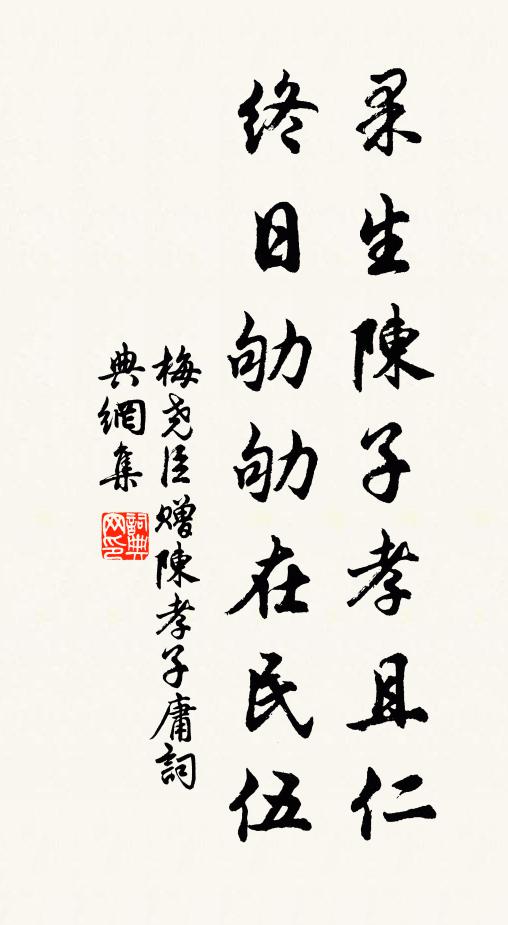 果生陳子孝且仁
終日劬劬在民伍
梅堯臣贈陳孝子庸詞
典網集
詞典
网印